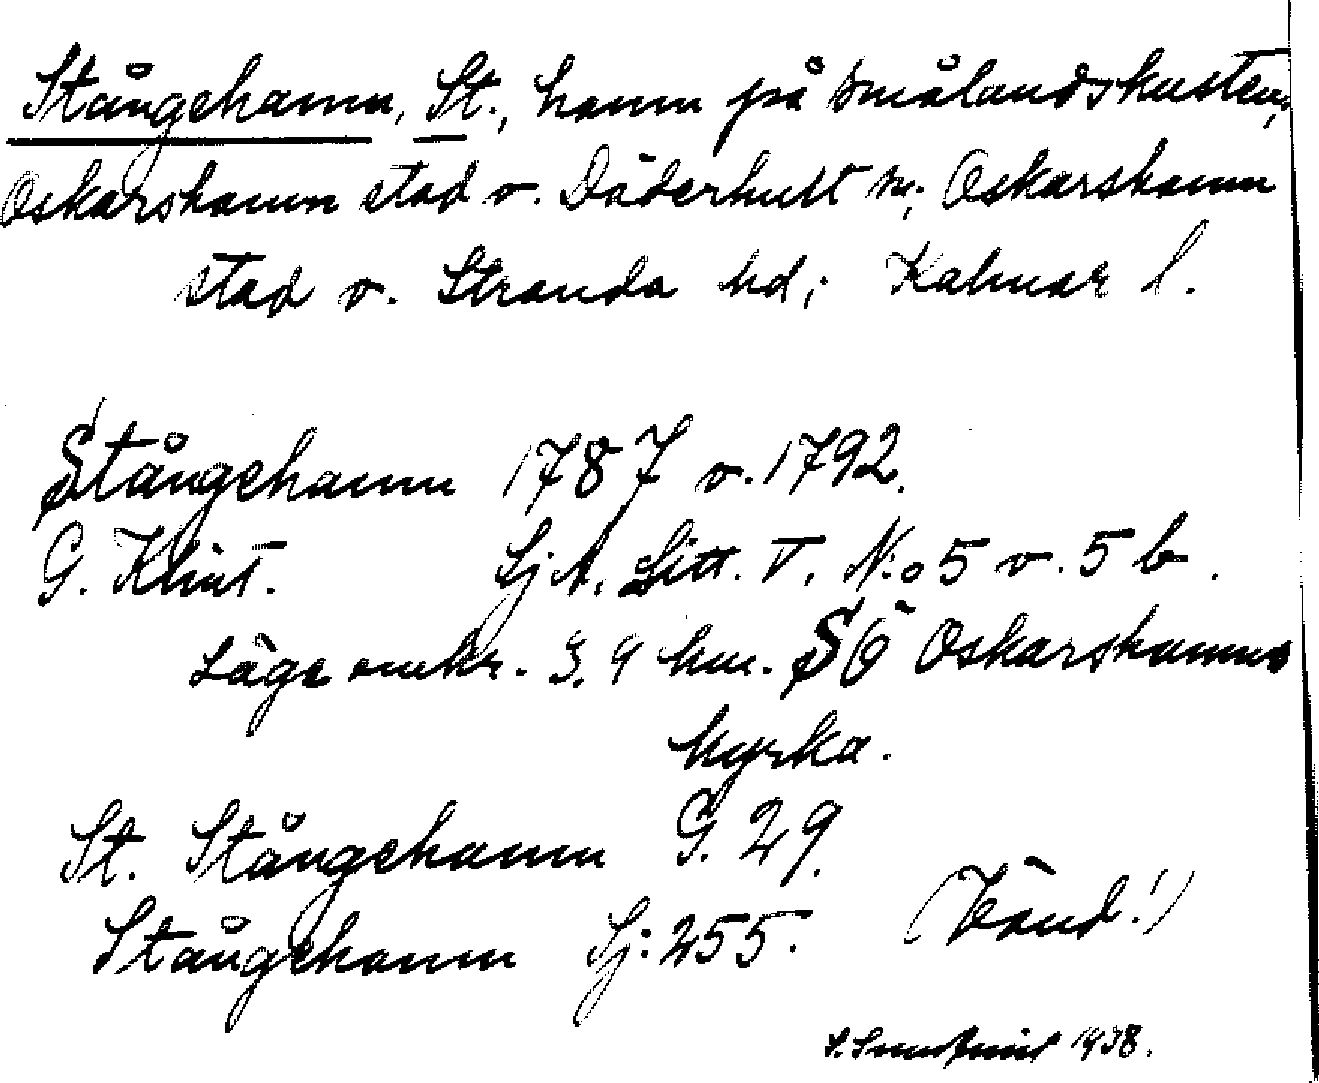 Stångehamn, St., hamn på Smålandskusten,
Oskarshamn stad o. Döderhult sn; Oskarshamn
stad o. Stranda hd; Kalmar l.
Stångehamn 1787 o. 1792.
G. Klint. Sj A. Litt. V. N:o 5 o. 5 b.
Läge omkr. 3,9 km. SÖ Oskarshamns
kyrka.
St. Stångehamn G. 29.
Stångehamn Sj: 255. (Vänd!)
1938.